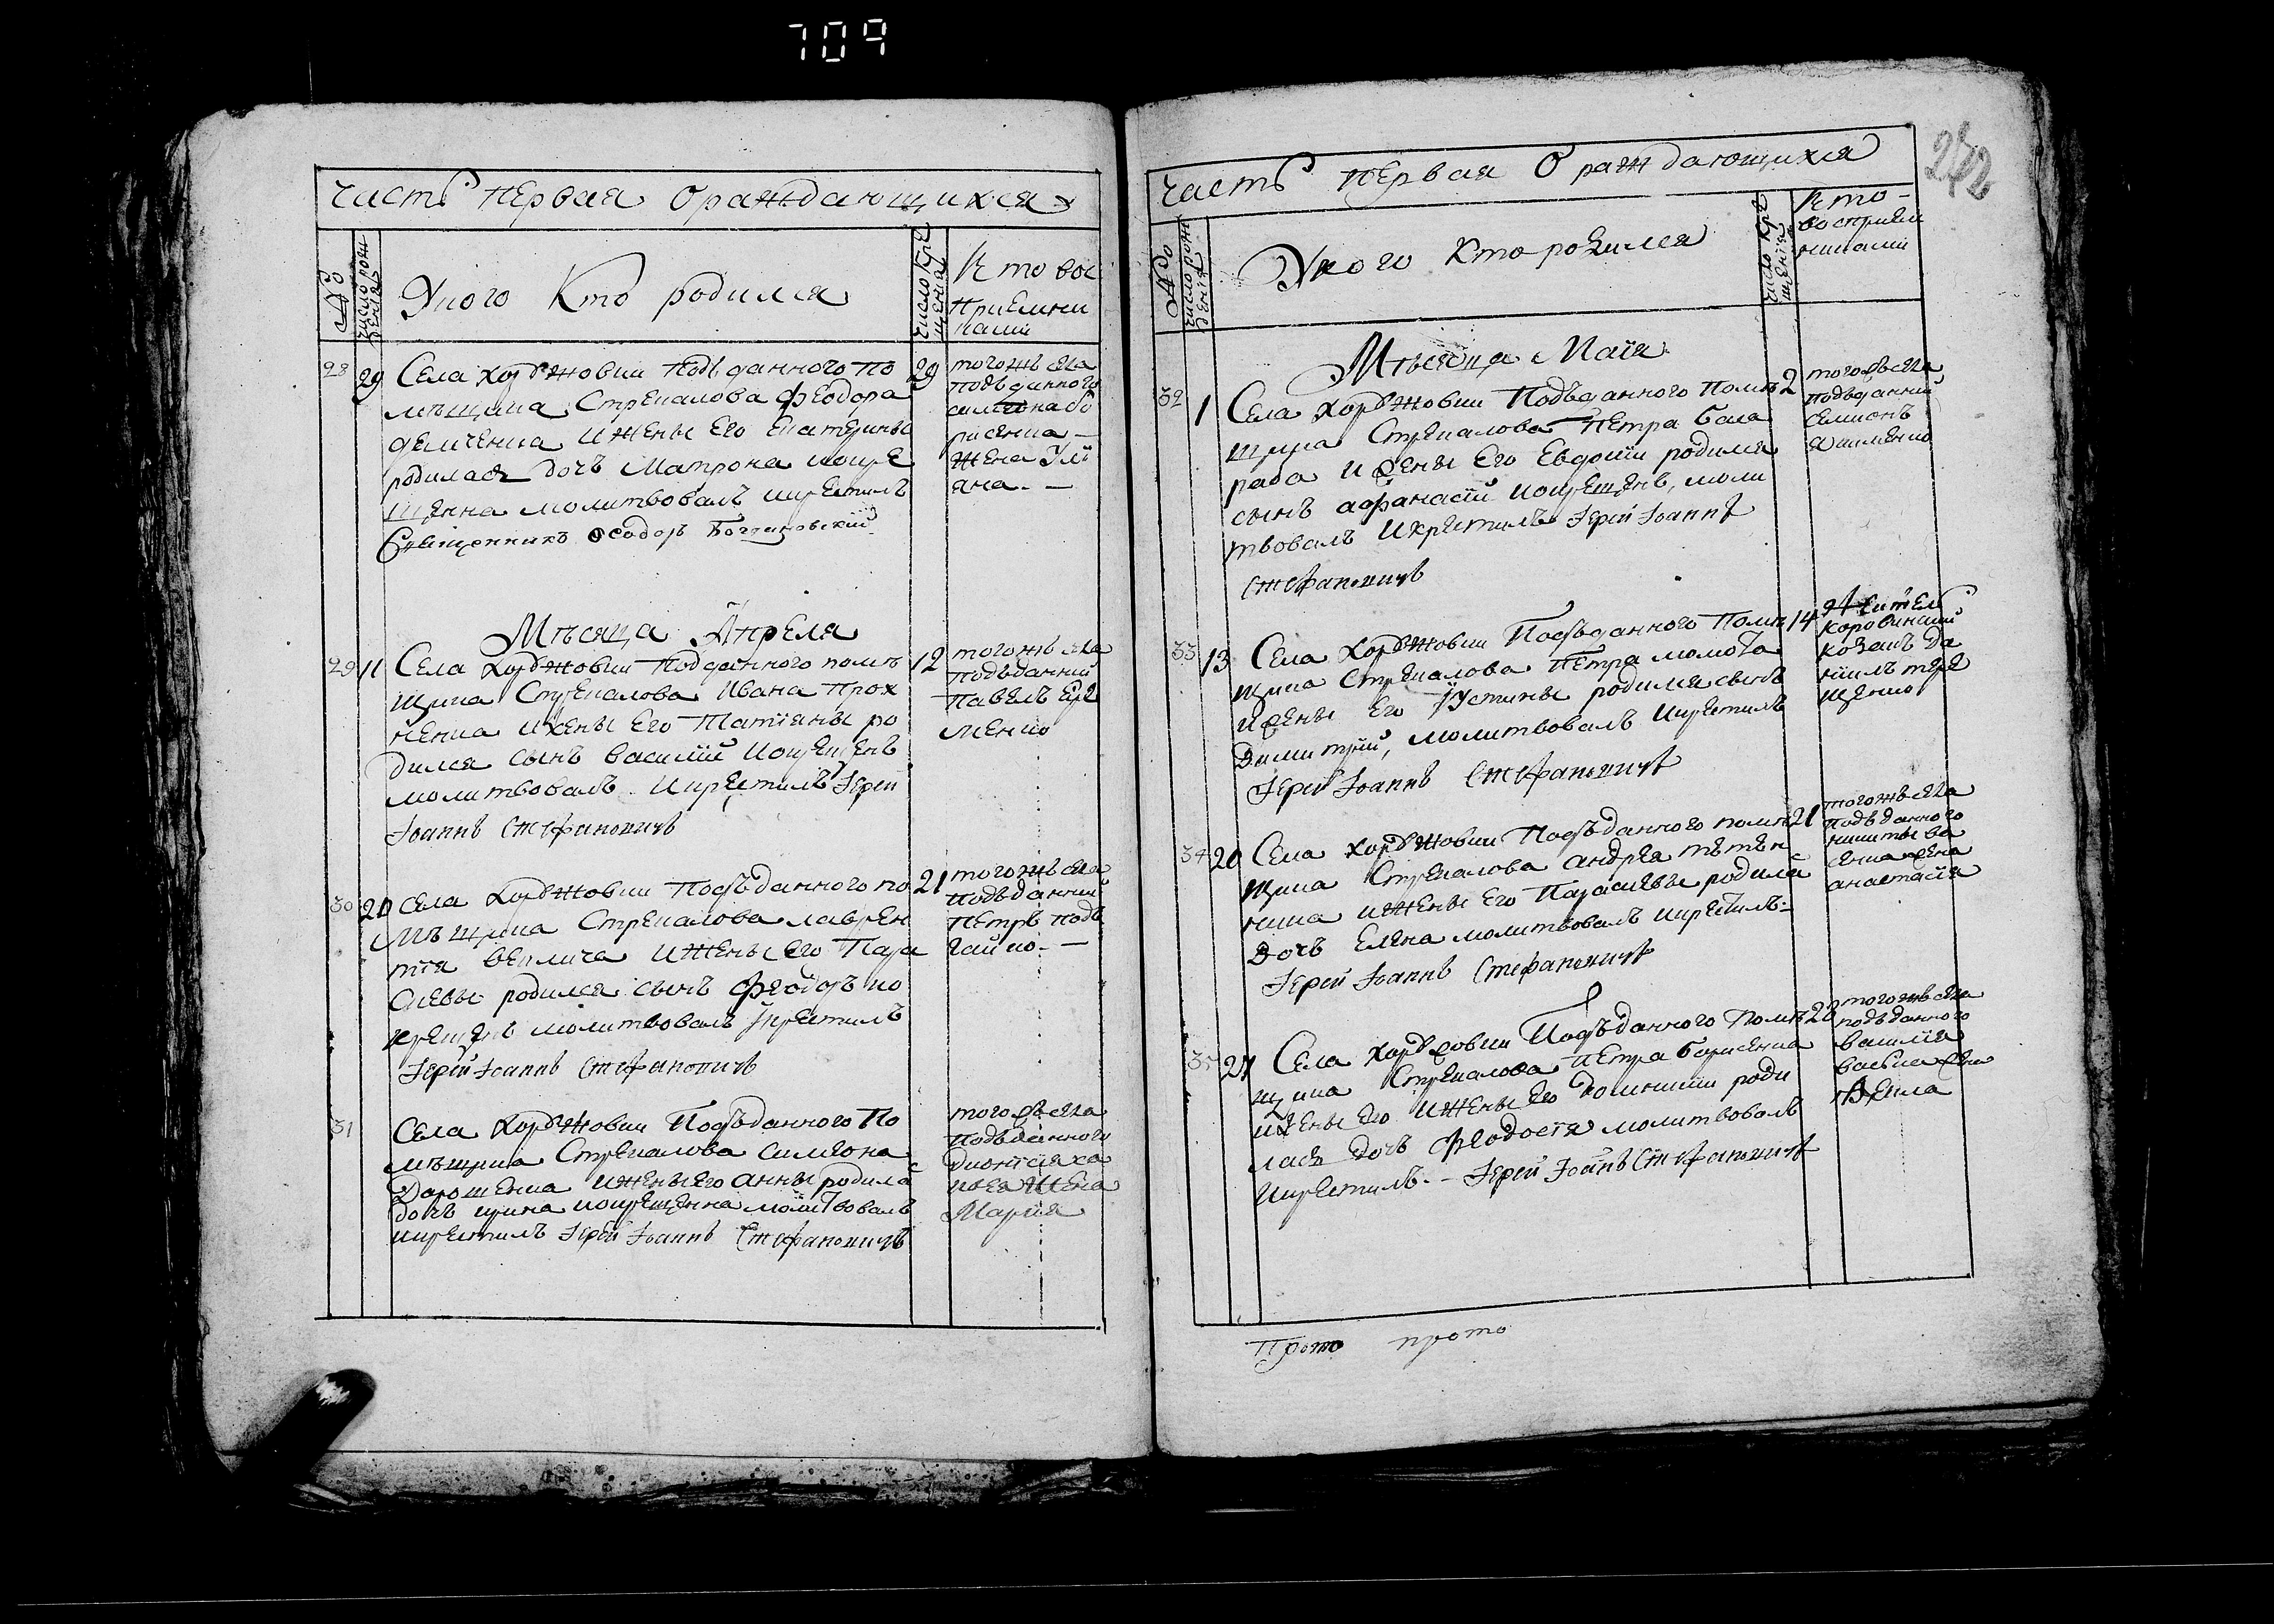 709
часть первая О раждающихся
№
число рож
дения
Укого Кто родился
число кре
щения
Кто вос
приемни
ками
28 29 Села Хоружовки Подъданного по 29
мѣщика Стрекалова Феодора
демченка и жены Его Екатерины
родилася дочь Матрона и окре
щенна молитвовалъ и крестилъ
Священникъ Феодоръ
тогожъ села
подъданного
симеона бо
рисенка
жена Улі
яна
Мѣсяца Апреля
29 11 Села Хоружовки Подданного помѣ 12
щика Стрекалова Ивана Прох
ненка и жены Его Татіаны ро
дился сынъ василій и окрещенъ
молитвовалъ и крестилъ Іерей
Іоаннъ Стефановичъ
тогожъ села
подъданний
Павелъ Ере
менко
30 20 Села Хоружовки Подъданного по 21
мѣщика Стрекалова лаврен
тія и жены Его Пара
скевы родился сынъ Феодоръ и о
крещенъ молитвовалъ и крестилъ
Іерей Іоаннъ Стефановичъ
тогожъ села
подъданний
Петръ Подъ
гайно
31 Села Хоружовки Подъданного По
мѣщика Стрекалова Симеона
Дорошенка и жены Его анны родилас
дочь ирина и окрещенна молитвовалъ
и крестилъ Іерей Іоаннъ Стефановичъ
тогожъ села
подъданного
жена
Мария
242
часть первая О раждающихся
№
число рож
дения
Укого Кто родился
число кре
щения
Кто
восприем
никами
Мѣсяца Маія
32 1 Села Хоружовки Подъданного помѣ 2
щика Стрекалова Петра бала
рада и жены Его Евдокіи родился
сынъ афанасій и окрещенъ, моли
твовалъ и крестилъ Іерей Іоаннъ
Стефановичъ
тогожъ села
подъданний
Симионъ
33 13 Села Хоружовки Подъданного Помѣ 14
щика Стрекалова Петра момота
и жены Его Іустины родился сынъ
Димитрій, молитвовалъ и крестилъ
Іерей Іоаннъ Стефановичъ
Жител
коровинский
козакъ Да
ниилъ тере
щенко
34 20 Села Хоружовки Подъданного помѣ 21
щика Стрекалова андрея
и жены Его Параскевы родилас
дочь Елена молитвовалъ и крестилъ
Іерей Іоаннъ Стефановичъ
тогожъ села
подъданного
никиты ва
сенка жена
анастасія
35 27 Села Хоружовки Подъданного Помѣ 28
щика Стрекалова Петра борисенка
и жены Его и жены Его Домникии роди
лася дочь Феодосія молитвовалъ
и крестилъ Іерей Іоаннъ Стефановичъ
тогожъ села
подъданного
василія
васька жена
Фекла
Прото прото